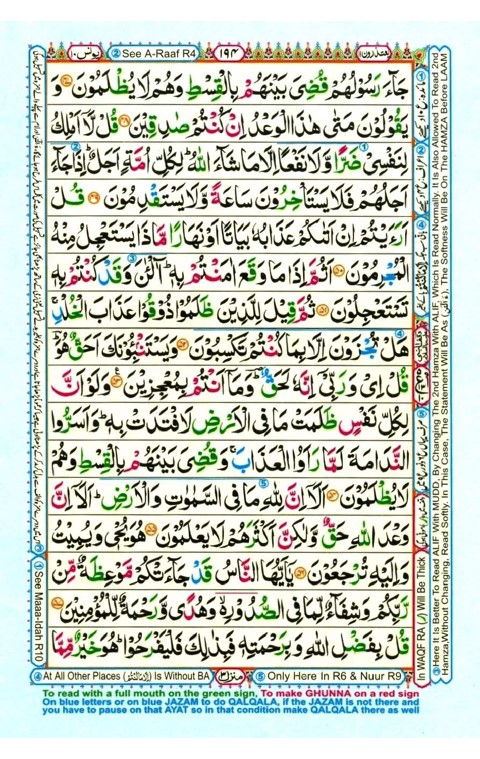 يونس ١٠ ② See A-Raaf R4 ١٩٤ يعتذرون ١١
جَآءَ رَسُوْلُهُمْ قُضِىَ بَيْنَهُمْ بِالْقِسْطِ وَهُمْ لَا يُظْلَمُوْنَ ۝ وَ
يَقُوْلُوْنَ مَتٰى هٰذَا الْوَعْدُ اِنْ كُنْتُمْ صٰدِقِيْنَ ۝ قُلْ لَّاۤ اَمْلِكُ
لِنَفْسِىْ ضَرًّا وَّلَا نَفْعًا اِلَّا مَا شَآءَ اللّٰهُ ؕ لِكُلِّ اُمَّةٍ اَجَلٌ ؕ اِذَا جَآءَ
اَجَلُهُمْ فَلَا يَسْتَاْخِرُوْنَ سَاعَةً وَّلَا يَسْتَقْدِمُوْنَ ۝ قُلْ
اَرَءَيْتُمْ اِنْ اَتٰىكُمْ عَذَابُهٗ بَيَاتًا اَوْ نَهَارًا مَّاذَا يَسْتَعْجِلُ مِنْهُ
الْمُجْرِمُوْنَ ۝ اَثُمَّ اِذَا مَا وَقَعَ اٰمَنْتُمْ بِهٖ ؕ آٰلْـٰٔنَ وَقَدْ كُنْتُمْ بِهٖ
تَسْتَعْجِلُوْنَ ۝ ثُمَّ قِيْلَ لِلَّذِيْنَ ظَلَمُوْا ذُوْقُوْا عَذَابَ الْخُلْدِ ۚ
هَلْ تُجْزَوْنَ اِلَّا بِمَا كُنْتُمْ تَكْسِبُوْنَ ۝ وَيَسْتَنْۢبِـُٔوْنَكَ اَحَقٌّ هُوَ ؕ
قُلْ اِىْ وَرَبِّىْۤ اِنَّهٗ لَحَقٌّ ؕ وَمَاۤ اَنْتُمْ بِمُعْجِزِيْنَ ۝ وَلَوْ اَنَّ
لِكُلِّ نَفْسٍ ظَلَمَتْ مَا فِى الْاَرْضِ لَافْتَدَتْ بِهٖ ؕ وَاَسَرُّوا
النَّدَامَةَ لَمَّا رَاَوُا الْعَذَابَ ۚ وَقُضِىَ بَيْنَهُمْ بِالْقِسْطِ وَهُمْ
لَا يُظْلَمُوْنَ ۝ اَلَاۤ اِنَّ لِلّٰهِ مَا فِى السَّمٰوٰتِ وَالْاَرْضِ ؕ اَلَاۤ اِنَّ
وَعْدَ اللّٰهِ حَقٌّ وَّلٰكِنَّ اَكْثَرَهُمْ لَا يَعْلَمُوْنَ ۝ هُوَ يُحْىٖ وَيُمِيْتُ
وَاِلَيْهِ تُرْجَعُوْنَ ۝ يٰۤاَيُّهَا النَّاسُ قَدْ جَآءَتْكُمْ مَّوْعِظَةٌ مِّنْ
رَّبِّكُمْ وَشِفَآءٌ لِّمَا فِى الصُّدُوْرِ ۙ وَهُدًى وَّرَحْمَةٌ لِّلْمُؤْمِنِيْنَ ۝
قُلْ بِفَضْلِ اللّٰهِ وَبِرَحْمَتِهٖ فَبِذٰلِكَ فَلْيَفْرَحُوْا ؕ هُوَ خَيْرٌ مِّمَّا
④ At All Other Places Is Without BA منزل ٣ ⑤ Only Here In R6 & Nuur R9
① See Maaa-Idah R10
In WAQF RA (ر) Will Be Thick
③ Here It Is Better To Read ALIF With MUDD, By Changing The 2nd Hamza With ALIF, Which Is Read Normally. It Is Also Allowed To Read 2nd
Hamza, Without Changing, Read Softly. In This Case, The Statement Will Be As, The Softness Will Be On The HAMZA Before LAAM
To read with a full mouth on the green sign, To make GHUNNA on a red sign
On blue letters or on blue JAZAM to do QALQALA, if the JAZAM is not there and
you have to pause on that AYAT so in that condition make QALQALA there as well